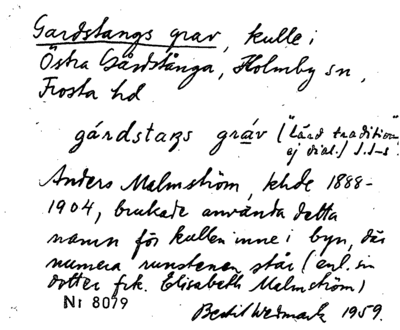 Gardstangs grav, kulle i
Östra Gårdstånga, Holmby sn,
Frosta hd
gárdstaŋs gràv ("Lärd tradition",
ej dial.) J.I-s.
Anders Malmström, khde 1888-
1904, brukade använda detta
namn för kullen inne i byn, där
numera runstenen står (enl. sin
dotter frk. Elisabeth Malmström)
Nr 8079
Bertil Wedmark 1959.